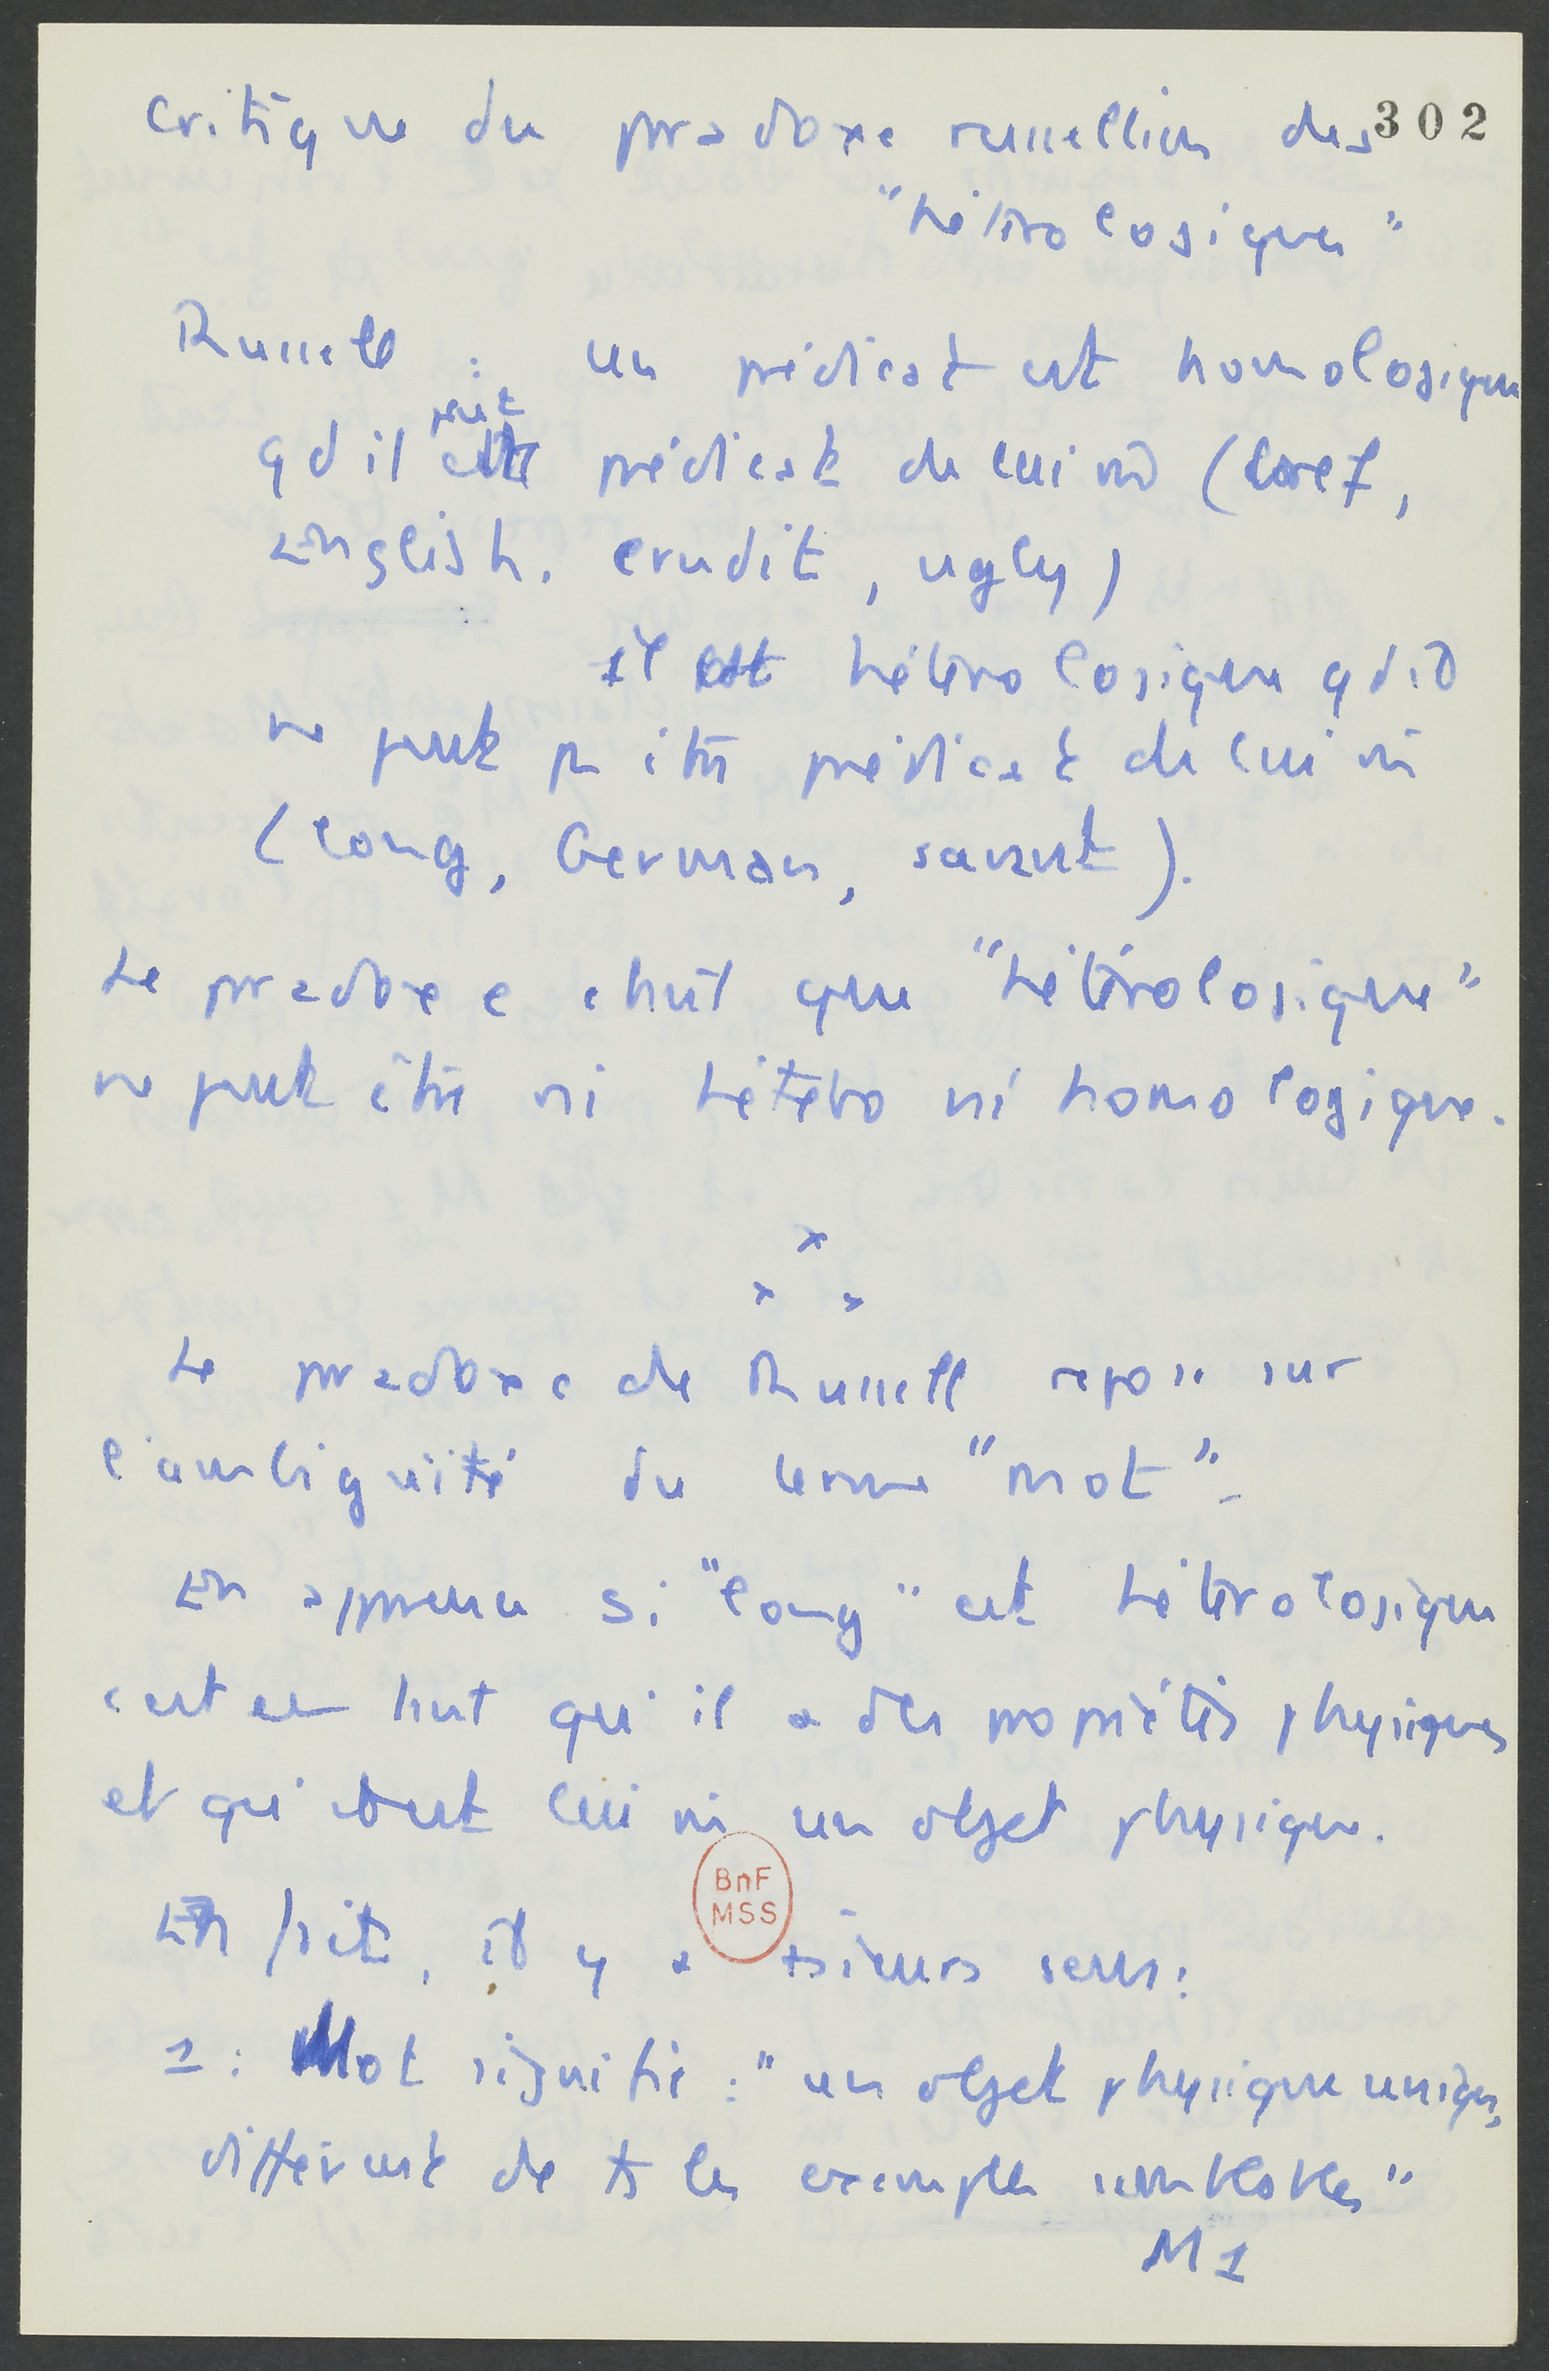 critique du paradoxe russellien des 302
"hétérologiques"
Russell : un prédicat est homologique
qd il peut être prédicat de lui m̂ (bref,
English. erudit, ugly)
il est hétérologique qd il
ne peut p être prédicat de lui m̂
(long, German, savant).
Le paradoxe c'est que "hétérologique"
ne peut être ni hétéro ni homologique.
x
x x
Le paradoxe de Russell repose sur
l'ambiguité du terme "mot".
En apparence si "long" est hétérologique
c'est en tant qu'il a des propriétés physiques
et qu'il est lui m̂ un objet physique.
BnF
MSS
En fait, il y a sieurs sens :
1 : Mot signifie : "un objet physique unique,
différent de ts les exemples semblables"
M1